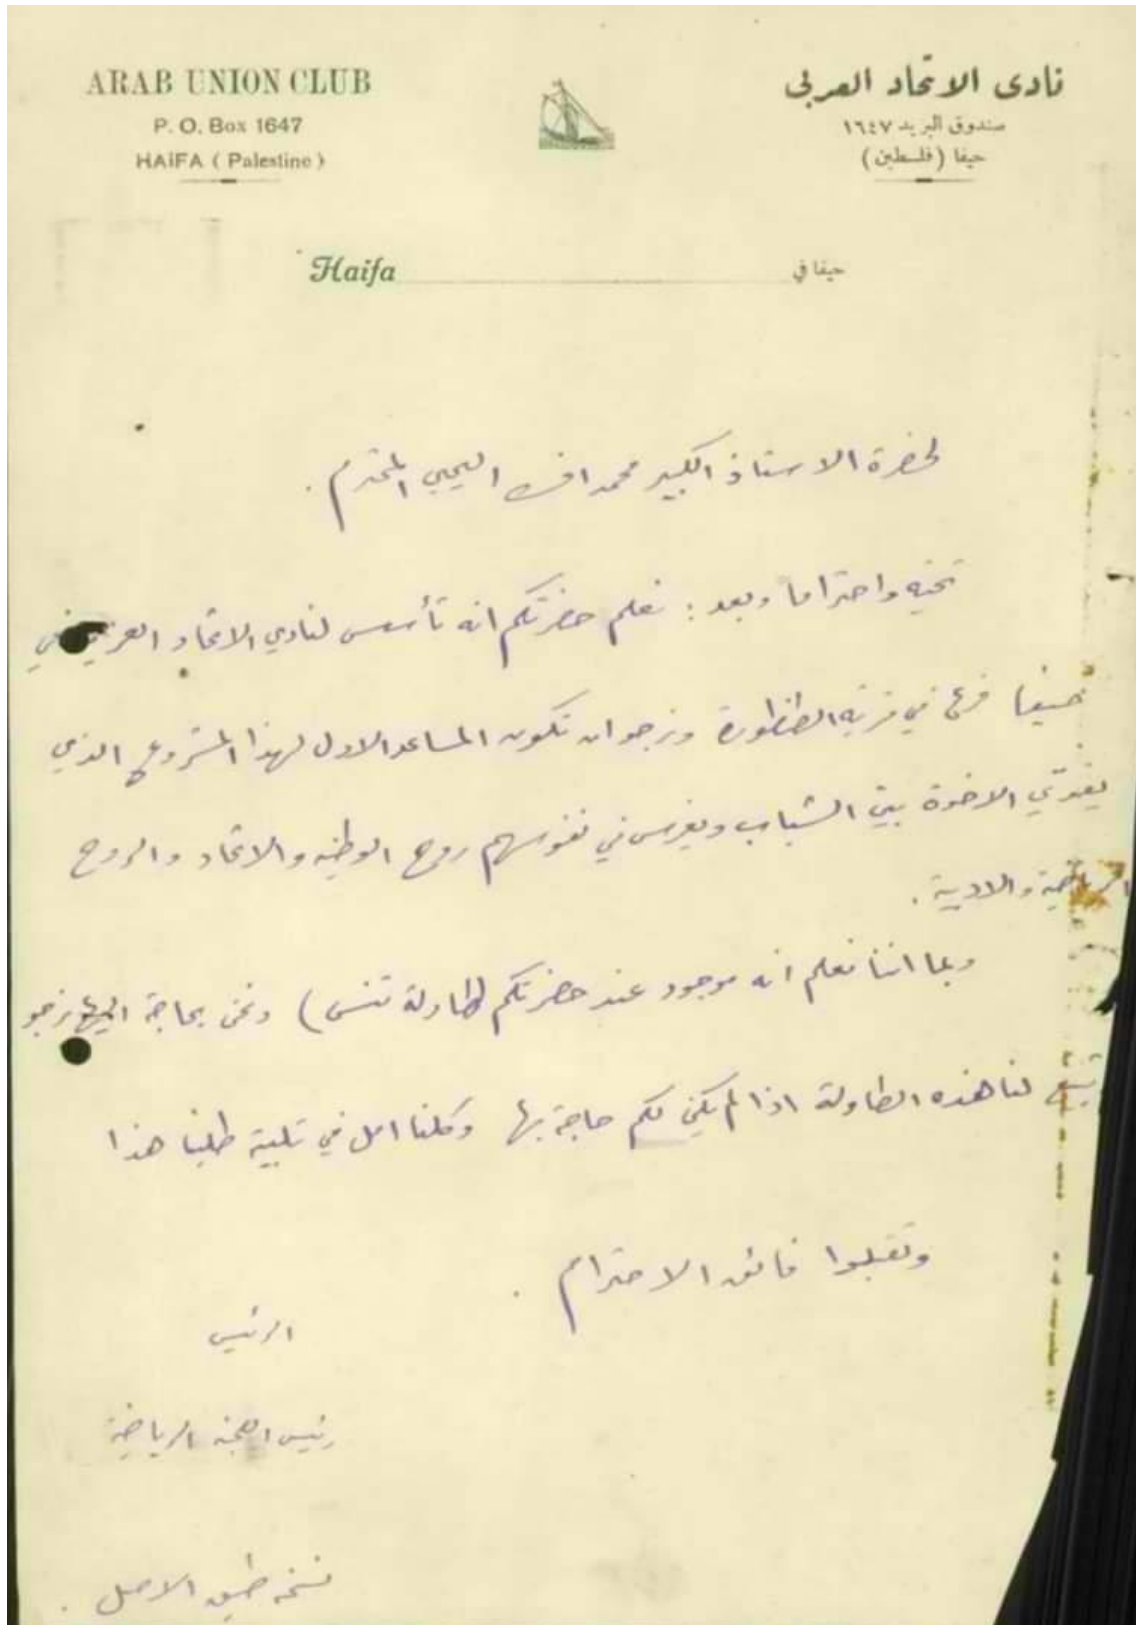 ARAB UNION CLUB
P. O. Box 1647
HAIFA ( Palestine )
نادى الاتحاد العربى
صندوق البريد ١٦٤٧
حيفا (فلسطين)
Haifa حيفا في
لحضرة الاستاذ الكبير محمد افندي اليحيى المحترم .
تحية واحتراما وبعد : نعلم حضرتكم انه تأسس لنادي الاتحاد العربي في
حيفا فرعا في قرية الطنطورة ونرجو ان تكون المساعد الاول لهذا المشروع الذي
يغذي الاخوة بين الشباب ويغرس في نفوسهم روح الوطنية والاتحاد والروح
الرياضية والادبية .
وبما اننا نعلم انه موجود عند حضرتكم (طاولة تنس) ونحن بحاجة اليها نرجو
لنا هذه الطاولة اذا لم يكن لكم حاجة بها وكلنا امل في تلبية طلبنا هذا
وتقبلوا فائق الاحترام .
الرئيس
رئيس اللجنة الرياضية
نسخة طبق الاصل .